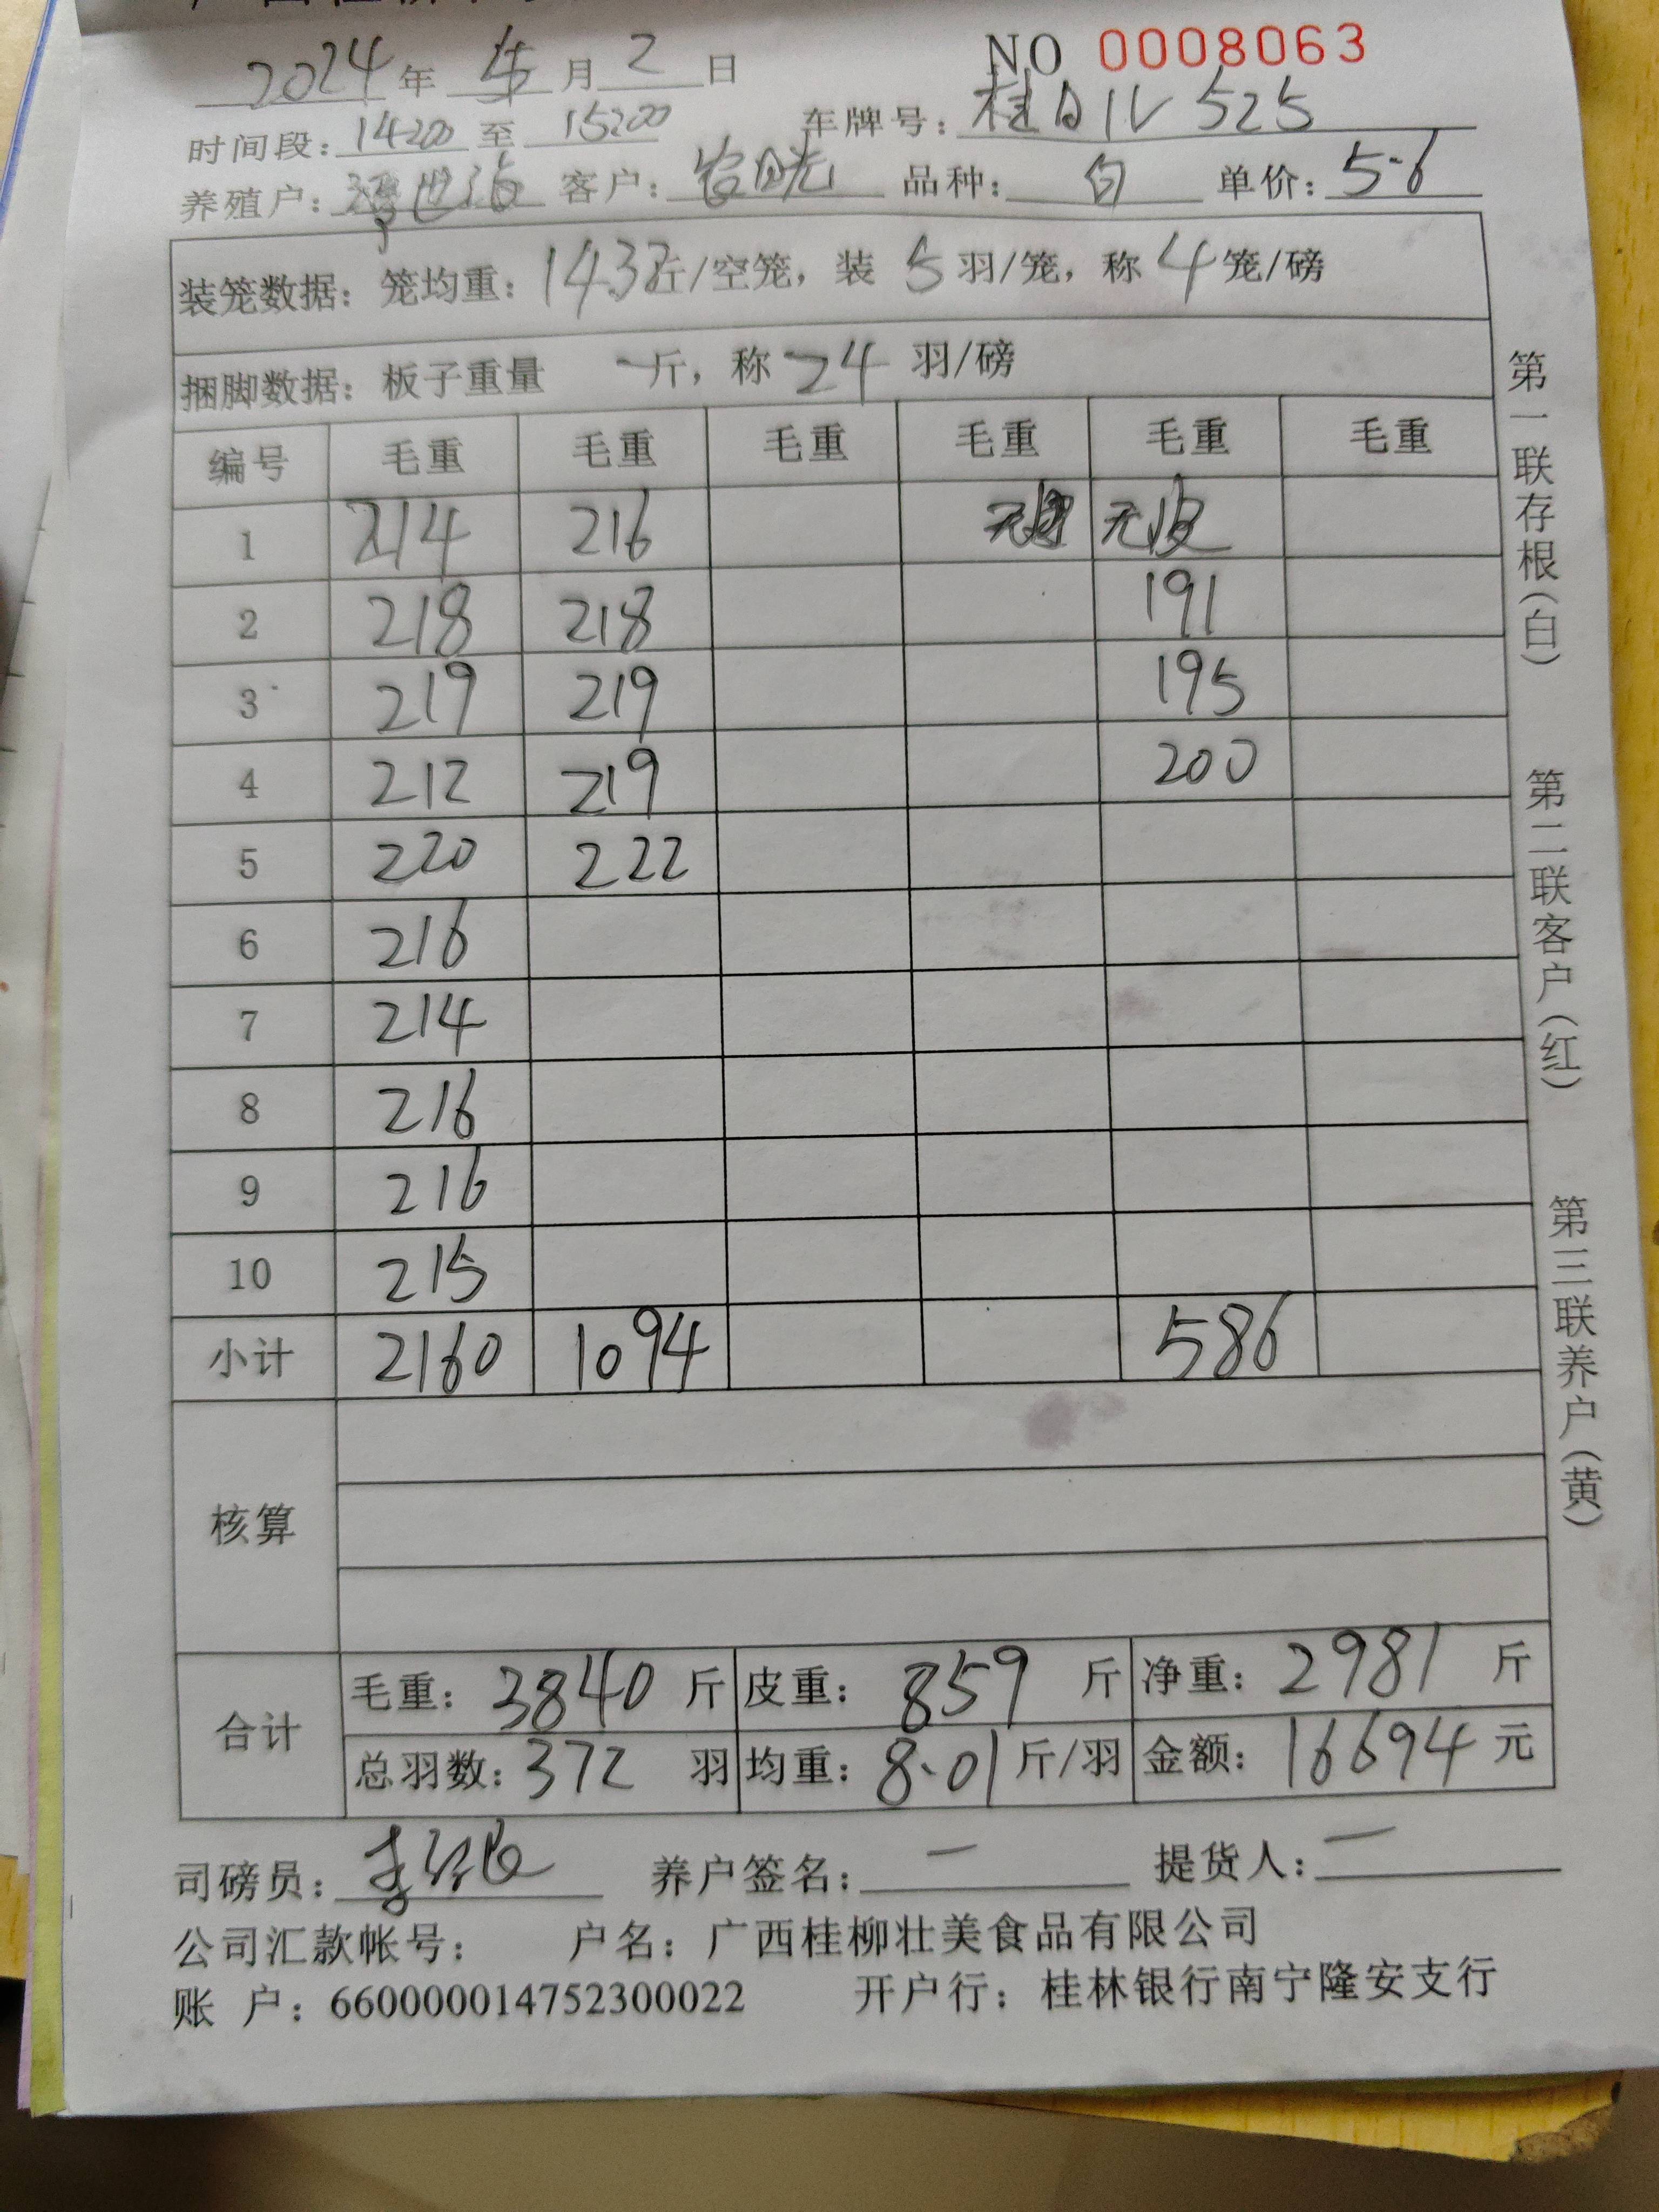 2024年 5月 2日 NO 0008063
时间段：14:00 至 15:00 车牌号：桂 525
养殖户： 客户： 品种：白 单价：5.6
装笼数据：笼均重：14.32斤/空笼，装 5 羽/笼，称 4 笼/磅
捆脚数据：板子重量 一斤，称 24 羽/磅
编号 毛重 毛重 毛重 毛重 毛重 毛重
1 214 216 无皮
2 218 218 191
3 219 219 195
4 212 219 200
5 220 222
6 216
7 214
8 216
9 216
10 215
小计 2160 1094 586
核算
合计 毛重：3840 斤 皮重：859 斤 净重：2981 斤
总羽数：372 羽 均重：8.01斤/羽 金额：16694 元
司磅员： 养户签名：一 提货人：一
公司汇款帐号： 户名：广西桂柳壮美食品有限公司
账 户：660000014752300022 开户行：桂林银行南宁隆安支行
第一联存根(白) 第二联客户(红) 第三联养户(黄)